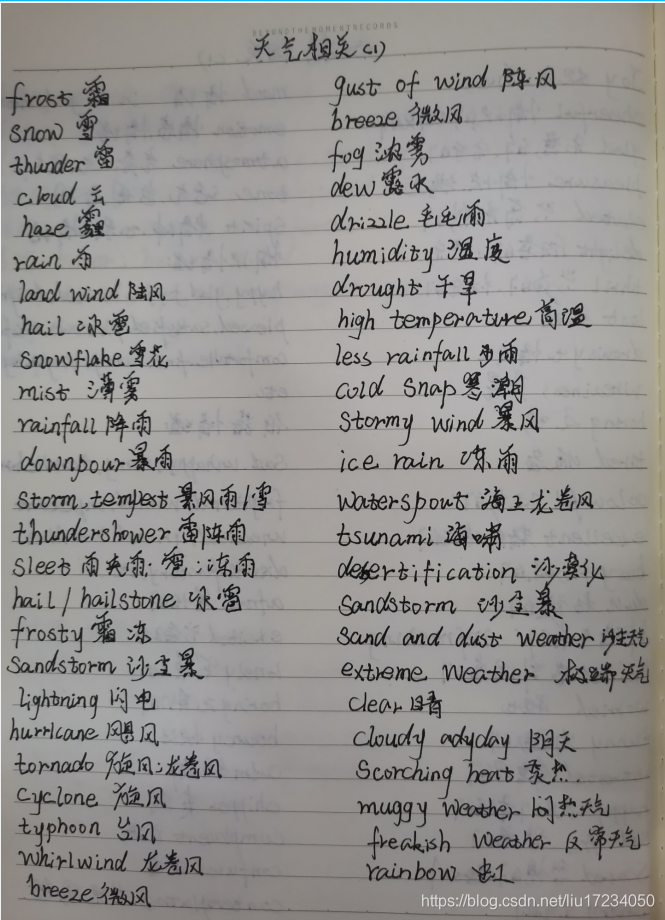 BEYONDTHEMOMENTRECORDS
天气相关(1)
frost 霜
snow 雪
thunder 雷
cloud 云
haze 霾
rain 雨
land wind 陆风
hail 冰雹
snowflake 雪花
mist 薄雾
rainfall 降雨
downpour 暴雨
storm, tempest 暴风雨/雪
thundershower 雷阵雨
sleet 雨夹雨;雹;冻雨
hail / hailstone 冰雹
frosty 霜冻
sandstorm 沙尘暴
lightning 闪电
hurricane 飓风
tornado 旋风;龙卷风
cyclone 旋风
typhoon 台风
whirlwind 龙卷风
breeze 微风
gust of wind 阵风
breeze 微风
fog 浓雾
dew 露水
drizzle 毛毛雨
humidity 湿度
drought 干旱
high temperature 高温
less rainfall 少雨
cold snap 寒潮
stormy wind 暴风
ice rain 冻雨
waterspout 海上龙卷风
tsunami 海啸
desertification 沙漠化
sandstorm 沙尘暴
sand and dust weather 沙尘天气
extreme weather 极端天气
clear 晴
cloudy adyday 阴天
scorching heat 炎热.
muggy weather 闷热天气
freakish weather 反常天气
rainbow 虹
https://blog.csdn.net/liu17234050